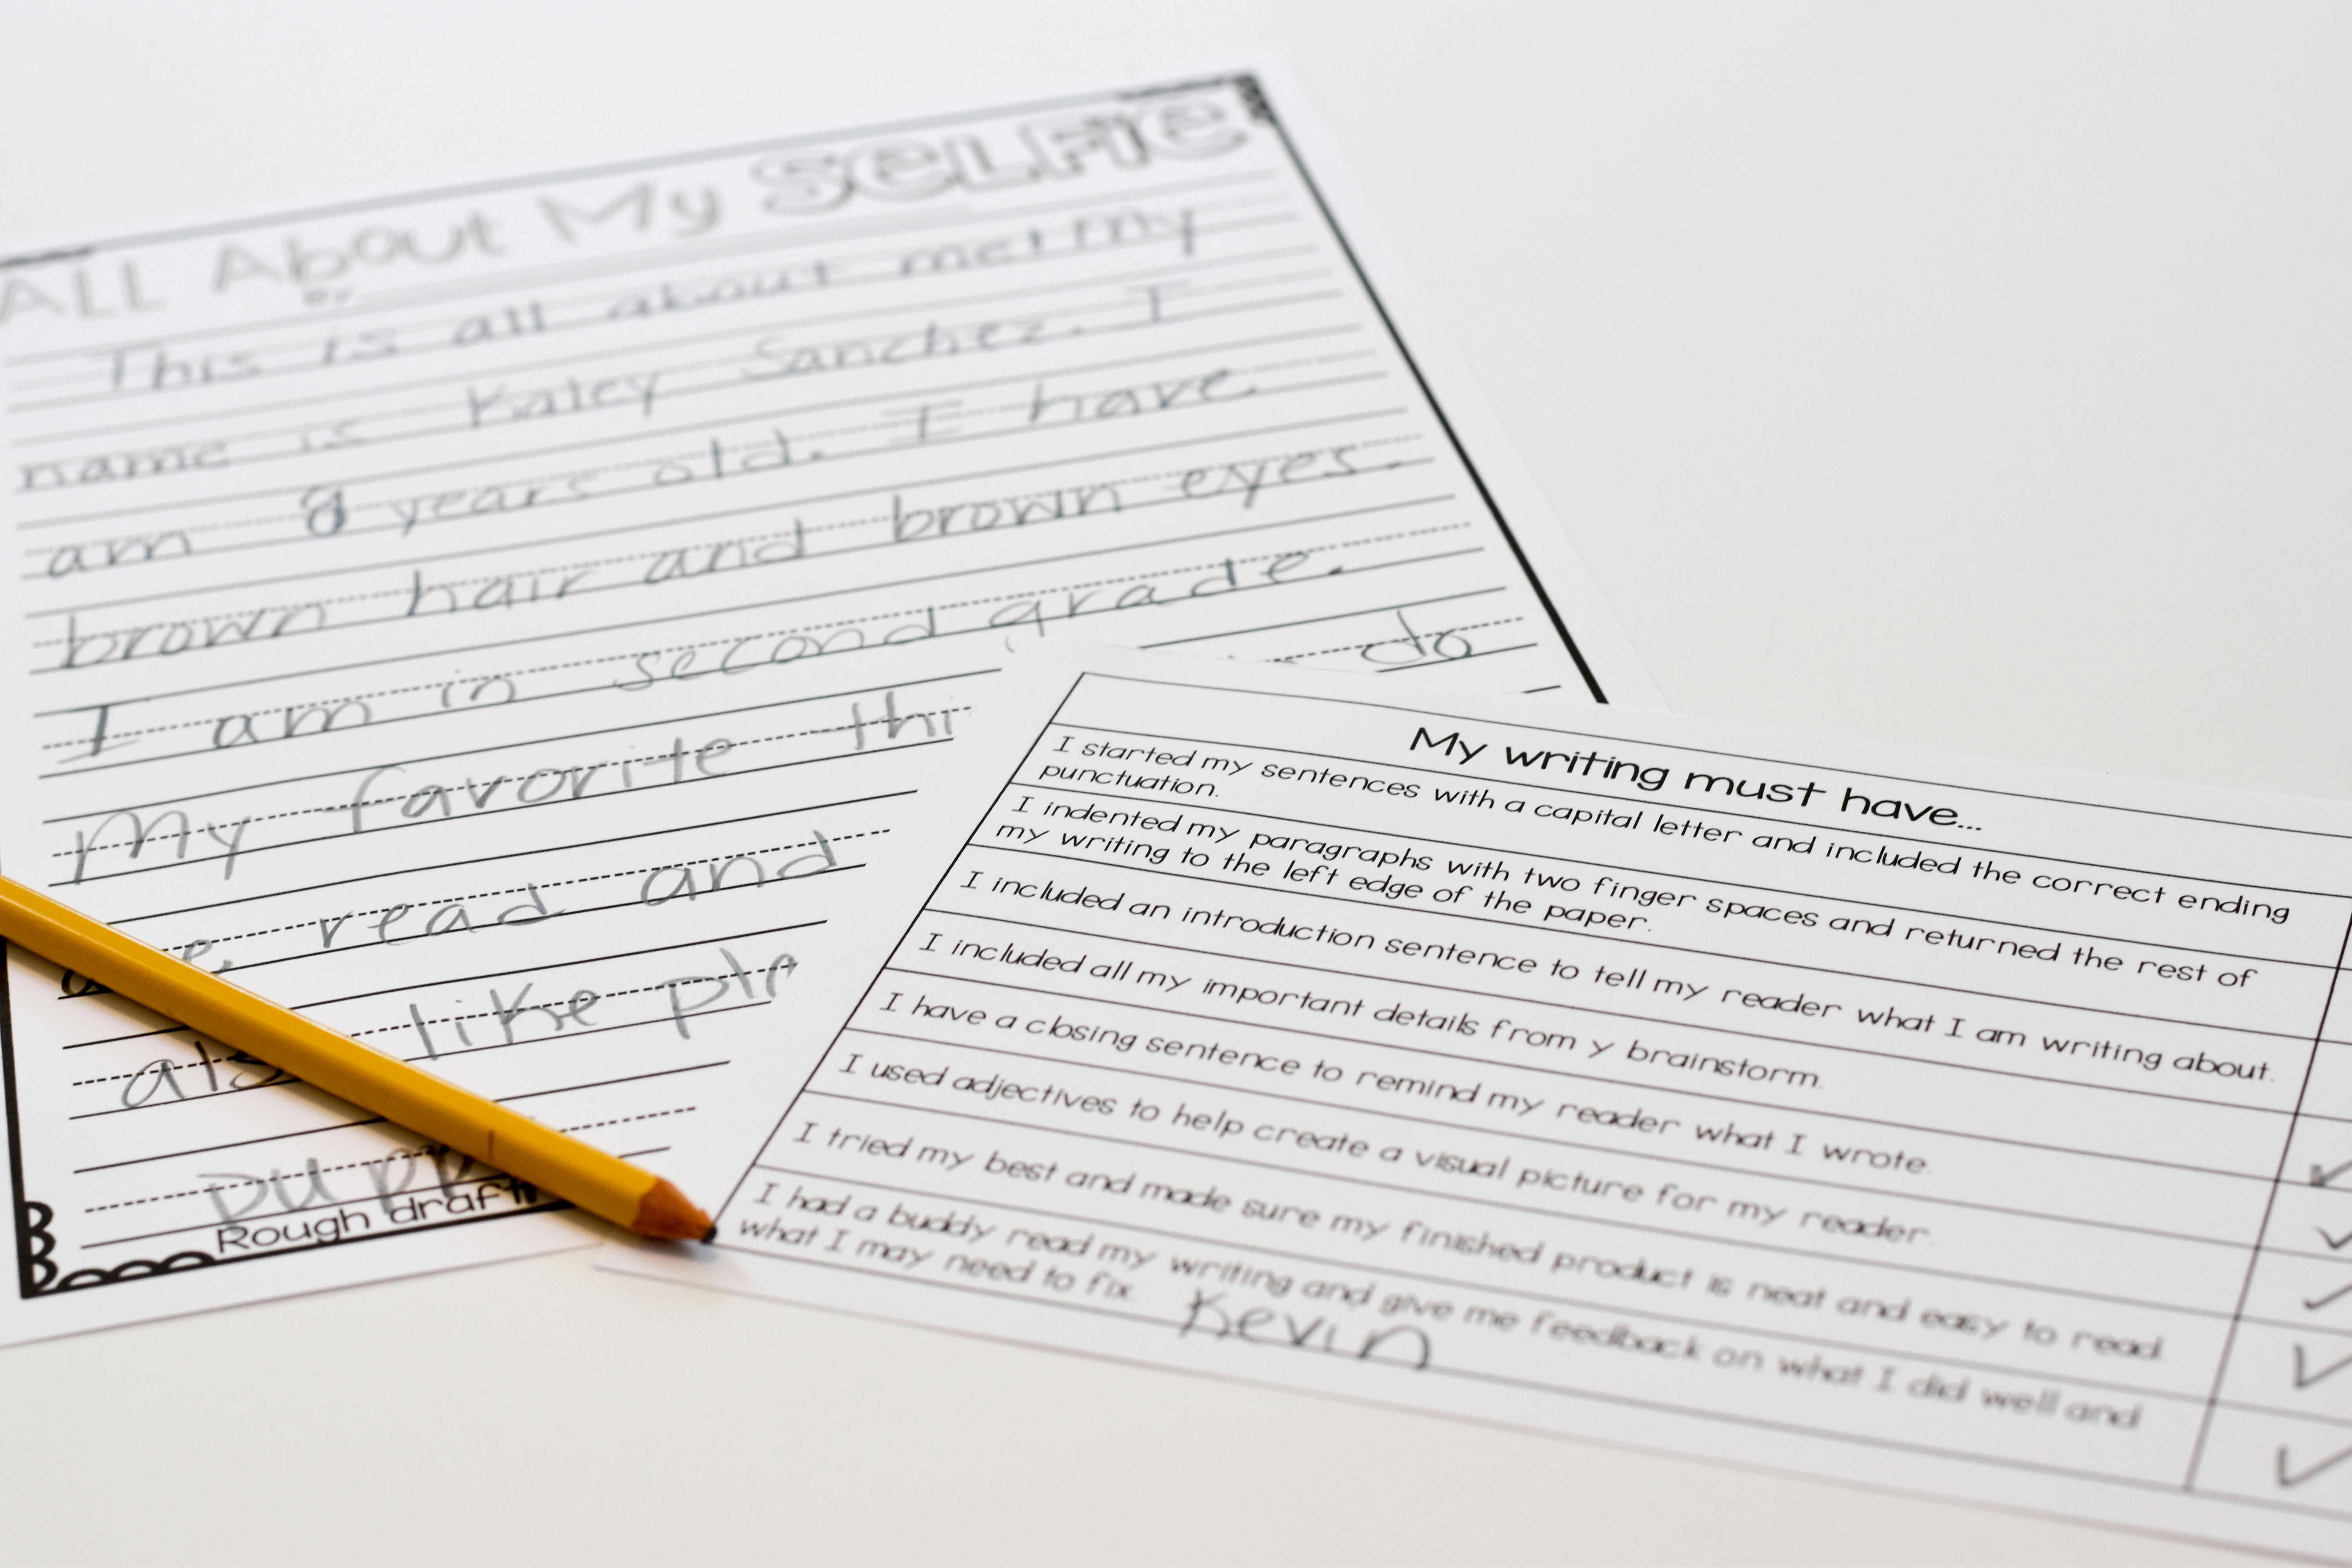 ALL About My SELFIE
By
This is all about me! My
name is Kaley Sanchez. I
am 8 years old. I have
brown hair and brown eyes.
I am in second grade.
My favorite thi do
read and
also like pla
pupp
Rough draft
My writing must have...
I started my sentences with a capital letter and included the correct ending
punctuation.
I indented my paragraphs with two finger spaces and returned the rest of
my writing to the left edge of the paper.
I included an introduction sentence to tell my reader what I am writing about.
I included all my important details from y brainstorm.
I have a closing sentence to remind my reader what I wrote.
I used adjectives to help create a visual picture for my reader.
I tried my best and made sure my finished product is neat and easy to read.
I had a buddy read my writing and give me feedback on what I did well and
what I may need to fix. Kevin